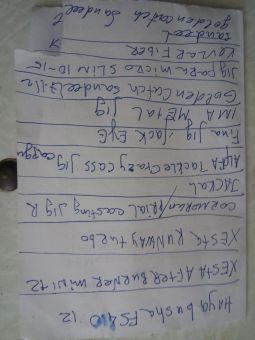 Hayabusha FS210 12
XESTA AFTER BURNER mini 72
XESTA RUNWAY turbo
CORMORAN/Prial casting JIG R
JACKAL
ALFA Tackle Crazy CASS JIG
Fina JIG JACK EYE
IMA METAL JIG
Golden Catch sandeel
Jig para micro SLIM 10-15
KEVLAR FIBER
sandeel
golden catch sandeel